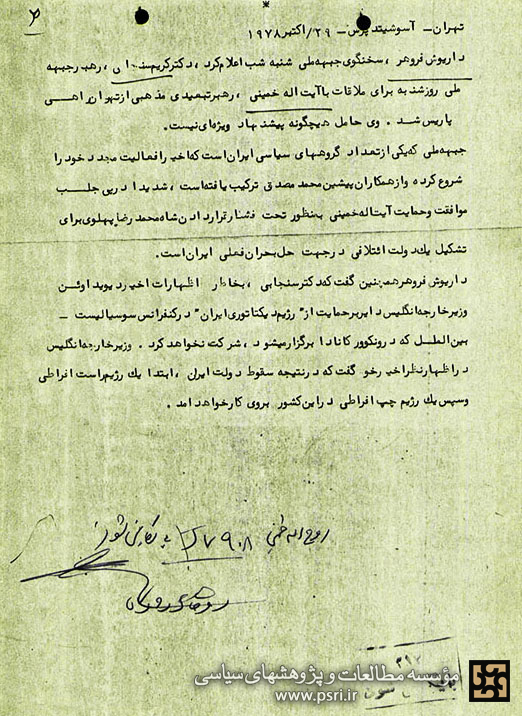 تهران - آسوشیتد پرس - ۲۹/اکتبر ۱۹۷۸
داریوش فروهر ، سخنگوی جبهه ملی شنبه شب اعلام کرد ، دکتر کریم سنجابی ، رهبر جبهه
ملی روز شنبه برای ملاقات با آیت اله خمینی ، رهبر تبعیدی مذهبی از تهران راهی
پاریس شد . وی حامل هیچگونه پیشنهاد ویژه ای نیست .
جبهه ملی که یکی از تعداد گروههای سیاسی ایران است که اخیرا فعالیت مجدد خود را
شروع کرده و از همکاران پیشین محمد مصدق ترکیب یافته است ، شدیدا در پی جلب
موافقت و حمایت آیت اله خمینی بمنظور تحت فشار قرار دادن شاه محمد رضا پهلوی برای
تشکیل یك دولت ائتلافی در جهت حل بحران فعلی ایران است .
داریوش فروهر همچنین گفت که دکتر سنجابی ، بخاطر اظهارات اخیر دیوید اوئن
وزیر خارجه انگلیس دایر بر حمایت از " رژیم دیکتاتوری ایران " در کنفرانس سوسیالیست -
بین الملل که در ونکوور کانادا برگزار میشود ، شرکت نخواهد کرد . وزیر خارجه انگلیس
در اظهار نظر اخیر خود گفت که در نتیجه سقوط دولت ایران ، ابتدا یك رژیم راست افراطی
و سپس یك رژیم چپ افراطی در این کشور بروی کار خواهد آمد .
روح اله خمینی ۹۰۸ به بایگانی شود
مؤسسه مطالعات و پژوهشهای سیاسی
www.psri.ir